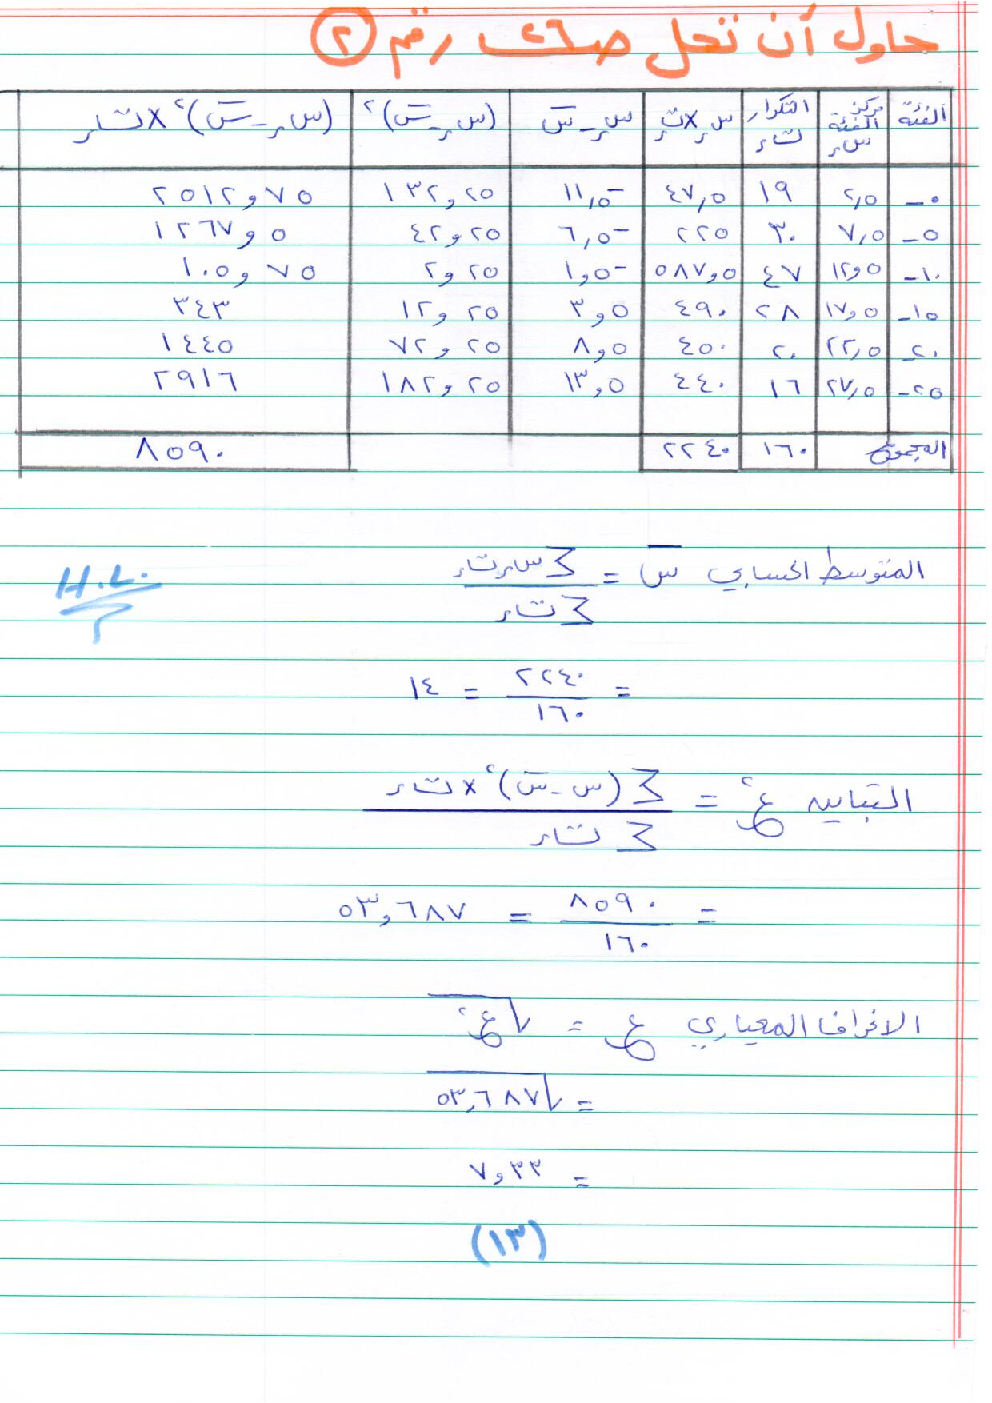 حاول أن تحل ص ٢٦ رقم (٢)
الفئة | مركز الفئة سر | التكرار تار | سر × تار | سر - س̄ | (سر - س̄)² | (سر - س̄)² × تار
٠- | ٢,٥ | ١٩ | ٤٧,٥ | -١١,٥ | ١٣٢,٢٥ | ٢٥١٢,٧٥
٥- | ٧,٥ | ٣٠ | ٢٢٥ | -٦,٥ | ٤٢,٢٥ | ١٢٦٧,٥
١٠- | ١٢,٥ | ٤٧ | ٥٨٧,٥ | -١,٥ | ٢,٢٥ | ١٠٥,٧٥
١٥- | ١٧,٥ | ٢٨ | ٤٩٠ | ٣,٥ | ١٢,٢٥ | ٣٤٣
٢٠- | ٢٢,٥ | ٢٠ | ٤٥٠ | ٨,٥ | ٧٢,٢٥ | ١٤٤٥
٢٥- | ٢٧,٥ | ١٦ | ٤٤٠ | ١٣,٥ | ١٨٢,٢٥ | ٢٩١٦
المجموع | ١٦٠ | ٢٢٤٠ | ٨٥٩٠
المتوسط الحسابي س̄ = ∑ سر تار / ∑ تار
H.L.
= ٢٢٤٠ / ١٦٠ = ١٤
التباين ع² = ∑ (س - س̄)² × تار / ∑ تار
= ٨٥٩٠ / ١٦٠ = ٥٣,٦٨٧
الانحراف المعياري ع = √ع²
= √٥٣,٦٨٧
= ٧,٣٣
(١٣)